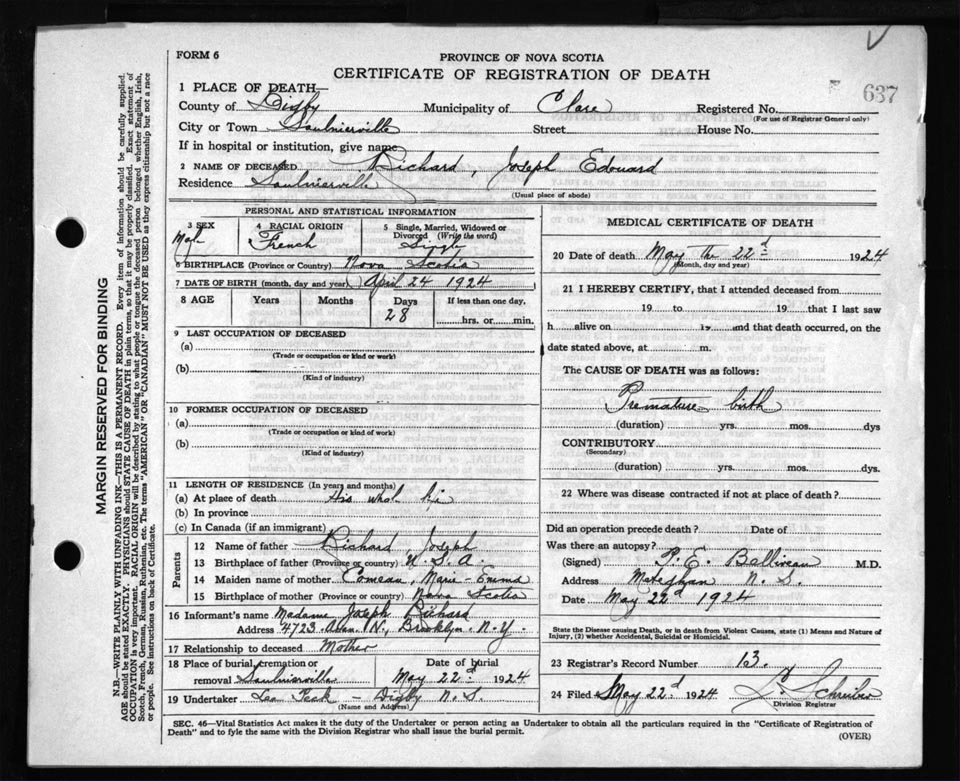 FORM 6
PROVINCE OF NOVA SCOTIA
CERTIFICATE OF REGISTRATION OF DEATH
637
1 PLACE OF DEATH—
County of Digby Municipality of Clare Registered No.
(For use of Registrar General only)
City or Town Saulnierville Street House No.
If in hospital or institution, give name
2 NAME OF DECEASED Richard, Joseph Edouard
Residence Saulnierville
(Usual place of abode)
PERSONAL AND STATISTICAL INFORMATION
3 SEX 4 RACIAL ORIGIN 5 Single, Married, Widowed or Divorced (Write the word)
Male French Single
6 BIRTHPLACE (Province or Country) Nova Scotia
7 DATE OF BIRTH (month, day and year) April 24 1924
8 AGE Years Months Days If less than one day,
28 hrs. or min.
9 LAST OCCUPATION OF DECEASED
(a)
(Trade or occupation or kind or work)
(b)
(Kind of industry)
10 FORMER OCCUPATION OF DECEASED
(a)
(Trade or occupation or kind of work)
(b)
(Kind of industry)
11 LENGTH OF RESIDENCE (In years and months)
(a) At place of death His whole life
(b) In province
(c) In Canada (if an immigrant)
Parents
12 Name of father Richard, Joseph
13 Birthplace of father (Province or country) U.S.A.
14 Maiden name of mother Comeau, Marie-Emma
15 Birthplace of mother (Province or country) Nova Scotia
16 Informant's name Madame Joseph Richard
Address 4723 N., Brooklyn. N.Y.
17 Relationship to deceased Mother
18 Place of burial, cremation or removal Saulnierville
Date of burial May 22d 1924
19 Undertaker Peck – Digby N.S.
(Name and Address)
MEDICAL CERTIFICATE OF DEATH
20 Date of death May the 22d 1924
(Month, day and year)
21 I HEREBY CERTIFY, that I attended deceased from
19 to 19 that I last saw
h alive on 19 and that death occurred, on the
date stated above, at m.
The CAUSE OF DEATH was as follows:
Premature birth
(duration) yrs. mos. dys
CONTRIBUTORY
(Secondary)
(duration) yrs. mos. dys.
22 Where was disease contracted if not at place of death?
Did an operation precede death? Date of
Was there an autopsy?
(Signed) P. E. Belliveau M.D.
Address Meteghan N.S.
Date May 22d 1924
State the Disease causing Death, or in death from Violent Causes, state (1) Means and Nature of
Injury, (2) whether Accidental, Suicidal or Homicidal.
23 Registrar's Record Number 13.
24 Filed May 22d 1924 Schreiber
Division Registrar
SEC. 46—Vital Statistics Act makes it the duty of the Undertaker or person acting as Undertaker to obtain all the particulars required in the "Certificate of Registration of
Death" and to fyle the same with the Division Registrar who shall issue the burial permit.
(OVER)
MARGIN RESERVED FOR BINDING
N.B.—WRITE PLAINLY WITH UNFADING INK—THIS IS A PERMANENT RECORD. Every item of information should be carefully supplied.
AGE should be stated EXACTLY. PHYSICIANS should STATE CAUSE OF DEATH in plain terms, so that it may be properly classified. Exact statement of
OCCUPATION is very important. RACIAL ORIGIN will be described by stating to what people or tongue the deceased person belonged whether English, Irish,
Scotch, French, German, Russian, Ruthenian, etc. The terms "AMERICAN" OR "CANADIAN" MUST NOT BE USED as they express citizenship but not a race
or people. See instructions on back of Certificate.